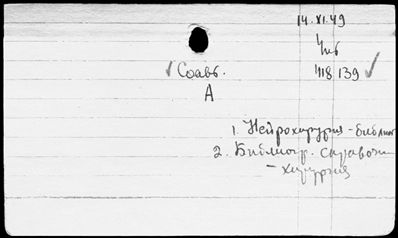 14.XI.49
Чит
418 139
Соавт.
А
1. Нейрохирургия - библиог
2. Библиогр. справочн
- хирургия